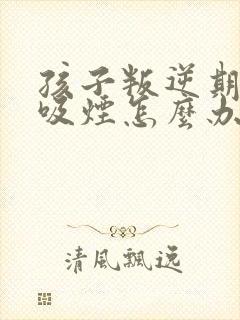 孩子叛逆期
吸煙怎麼办
清風飄逸